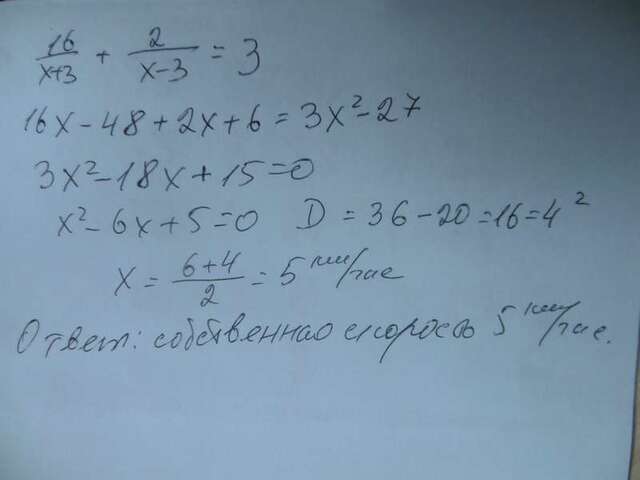 16/(x+3) + 2/(x-3) = 3
16x - 48 + 2x + 6 = 3x² - 27
3x² - 18x + 15 = 0
x² - 6x + 5 = 0 D = 36 - 20 = 16 = 4²
x = (6+4)/2 = 5 км/час
Ответ: собственная скорость 5 км/час.